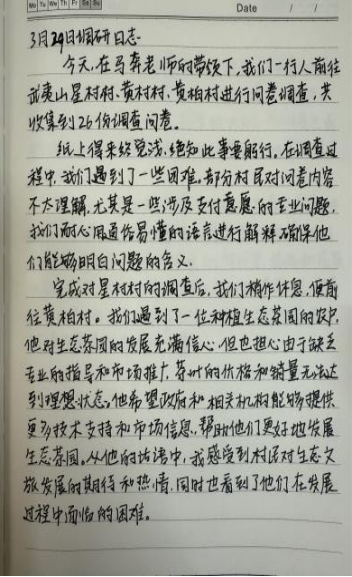 Mo Tu We Th Fr Sa Su
Date / /
3月29日调研日志
今天,在马奔老师的带领下,我们一行人前往
武夷山星村村、黄村村、黄柏村进行问卷调查,共
收集到26份调查问卷。
纸上得来终觉浅,绝知此事要躬行。在调查过
程中,我们遇到了一些困难,部分村民对问卷内容
不太理解,尤其是一些涉及支付意愿的专业问题,
我们耐心用通俗易懂的语言进行解释,确保他
们能够明白问题的含义。
完成对星村村的调查后,我们稍作休息,便前
往黄柏村。我们遇到了一位种植生态茶园的农户,
他对生态茶园的发展充满信心,但也担心由于缺乏
专业的指导和市场推广,茶叶的价格和销量无法达
到理想状态。他希望政府和相关机构能够提供
更多技术支持和市场信息,帮助他们更好地发展
生态茶园。从他的话语中,我感受到村民对生态文
旅发展的期待和热情,同时也看到了他们在发展
过程中面临的困难。